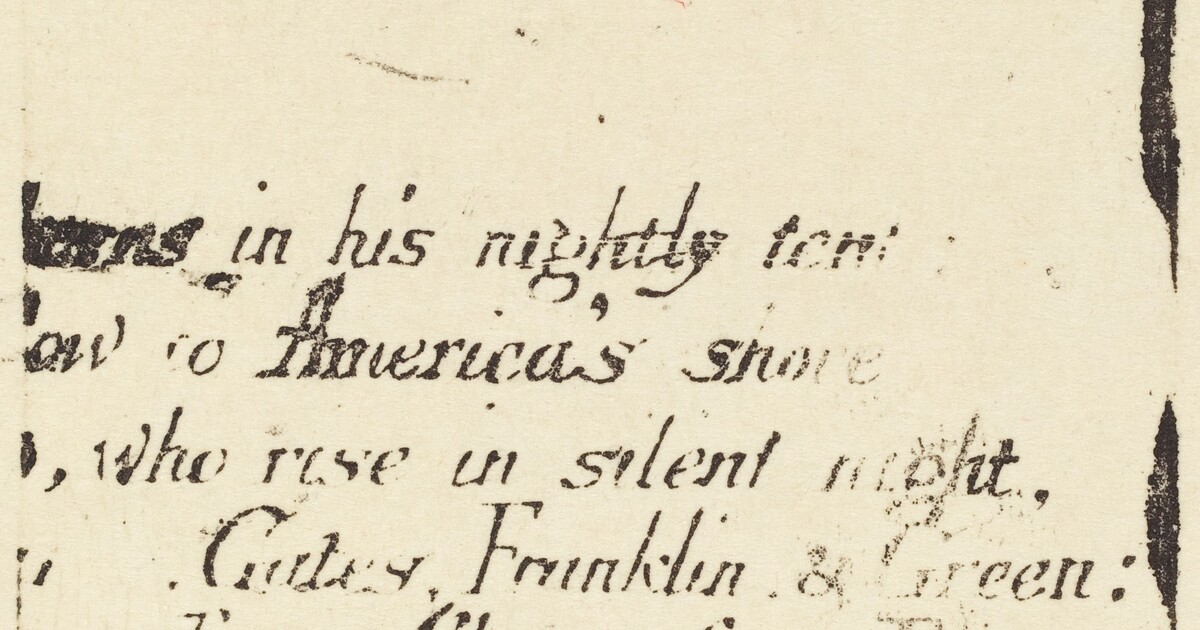 burns in his nightly tent
low to America's shore
, who rise in silent night,
Gates, Franklin & Green: